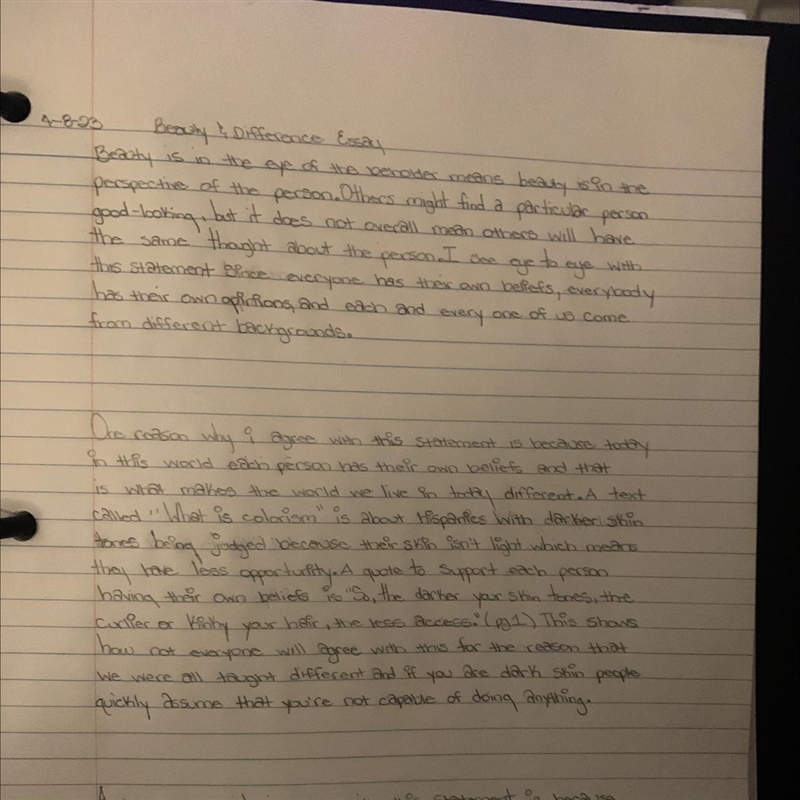 4-8-23 Beauty & Difference Essay
Beauty is in the eye of the beholder means beauty is in the
perspective of the person. Others might find a particular person
good-looking, but it does not overall mean others will have
the same thought about the person. I see eye to eye with
this statement since everyone has their own beliefs, everybody
has their own opinions, and each and every one of us come
from different backgrounds.
One reason why i agree with this statement is because today
in this world each person has their own beliefs and that
is what makes the world we live in today different. A text
called "What is colorism" is about Hispanics with darker skin
tones being judged because their skin isn't light which means
they have less opportunity. A quote to support each person
having their own beliefs is "So, the darker your skin tones, the
curlier or kinky your hair, the less access." (pg 1) This shows
how not everyone will agree with this for the reason that
we were all taught different and if you are dark skin people
quickly assume that you're not capable of doing anything.
statement is because